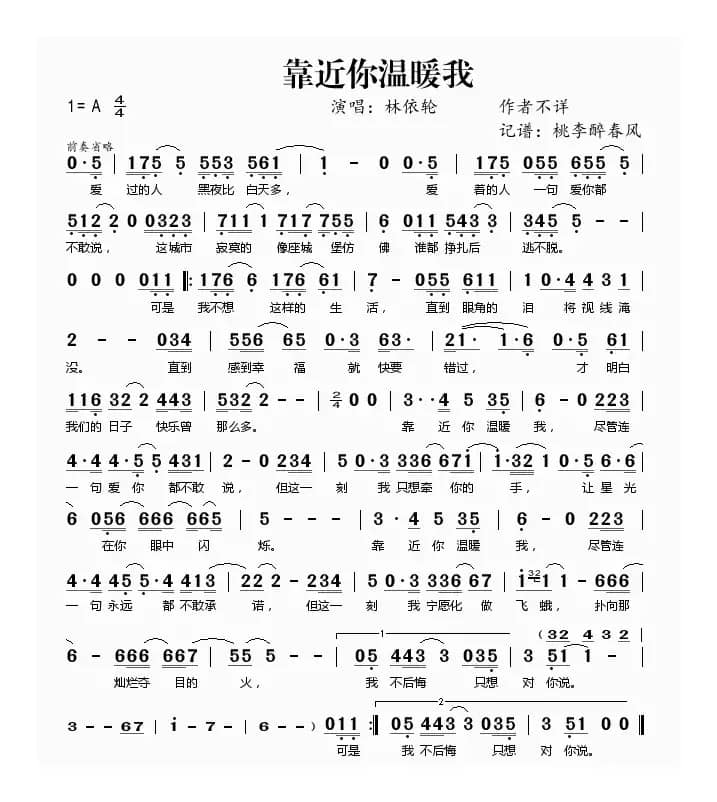 靠近你温暖我
1=A 4/4 演唱：林依轮 作者不详
记谱：桃李醉春风
前奏省略
0·5 | 175 5 553 561 | 1 - 0 0·5 | 175 055 655 5 |
爱 过的人 黑夜比 白天多， 爱 着的人 一句 爱你都
512 2 0 0323 | 711 1 717 755 | 6 011 543 3 | 345 5 - - |
不敢说， 这城市 寂寞的 像座城 堡仿 佛 谁都 挣扎后 逃不脱。
0 0 0 011 ‖: 176 6 176 61 | 7 - 055 611 | 1 0·4 4 3 1 |
可是 我不想 这样的 生 活， 直到 眼角的 泪 将 视 线 淹
2 - - 034 | 556 65 0·3 63· | 21· 1·6 0·5 61 |
没。 直到 感到幸 福 就 快要 错过， 才 明白
116 32 2 443 | 532 2 - - | 2/4 0 0 | 3··4 5 35 | 6 - 0 223 |
我们的 日子 快乐曾 那么多。 靠 近 你 温暖 我， 尽管连
4·4 4·5 5 431 | 2 - 0 234 | 5 0·3 336 671 | 1·32 1 0·5 6·6 |
一 句 爱 你 都不敢 说， 但这一 刻 我 只想牵 你的 手， 让 星 光
6 056 666 665 | 5 - - - | 3·4 5 35 | 6 - 0 223 |
在你 眼中 闪 烁。 靠 近 你 温暖 我， 尽管连
4·4 45 5·4 413 | 22 2 - 234 | 5 0·3 336 67 | 1 32 1 1 - 666 |
一 句 永远 都 不敢承 诺， 但这一 刻 我 宁愿化 做 飞 蛾， 扑向那
(32 4 3 2
6 - 666 667 | 55 5 - - | 1 05 443 3 035 | 3 51 1 - |
灿烂夺 目的 火， 我 不后悔 只想 对 你说。
3 - - 67 | i - 7 - | 6 - - ) 011 :‖ 2 05 443 3 035 | 3 51 0 0 ‖
可是 我 不后悔 只想 对 你说。